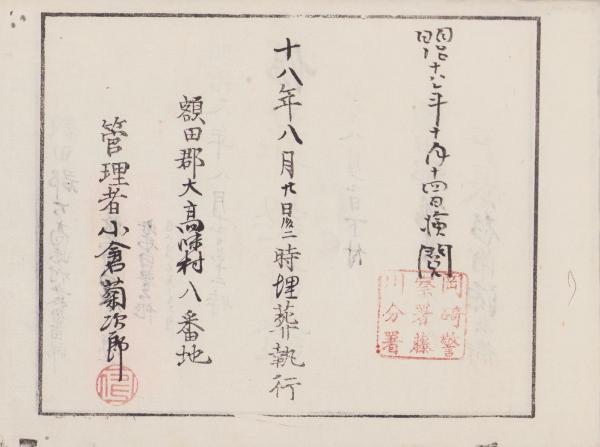 明治十八年十月十四日検閲
岡崎警
察署藤
川分署
十八年八月九日後二時埋葬執行
額田郡大高味村八番地
管理者小倉菊次郎